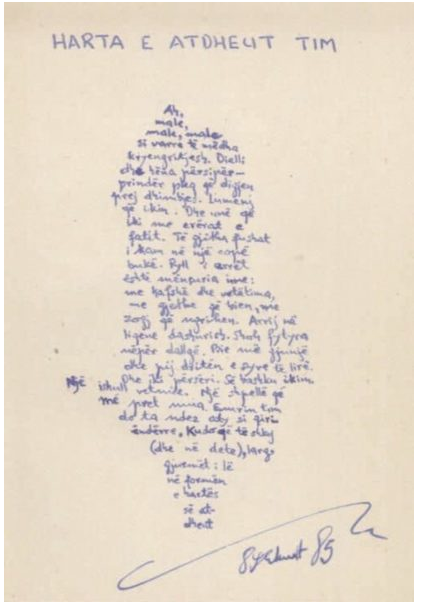 HARTA E ATDHEUT TIM
Ah,
male,
male, male
si varre të mëdha
kryengritjesh. Dielli
dhe hëna përsipër—
prindër pleq që digjen
prej dhimbjes. Lumenj
që ikin. Dhe unë që
iki me erërat e
fatit. Të gjitha fushat
i kam në një copë
bukë. Pyll i errët
është mënyra ime:
me kafshë dhe vetëtima,
me gjethe që bien, me
zogj që ngrihen. Arrij në
liqene dashurish. Shoh fytyra
nëpër dallgë. Bie më gjunjë
dhe pij dritën e syve të lirë.
dhe iki përsëri. Së bashku ikim.
Një ishull vetmie. Një shpellë që
më pret mua. Emrin tim
do ta ndez aty si qiri
ëndërre, Kudo që të shkoj
(dhe në dete), largo
gjurmët: lë
në formën
e hartës
së at-
dheut
85